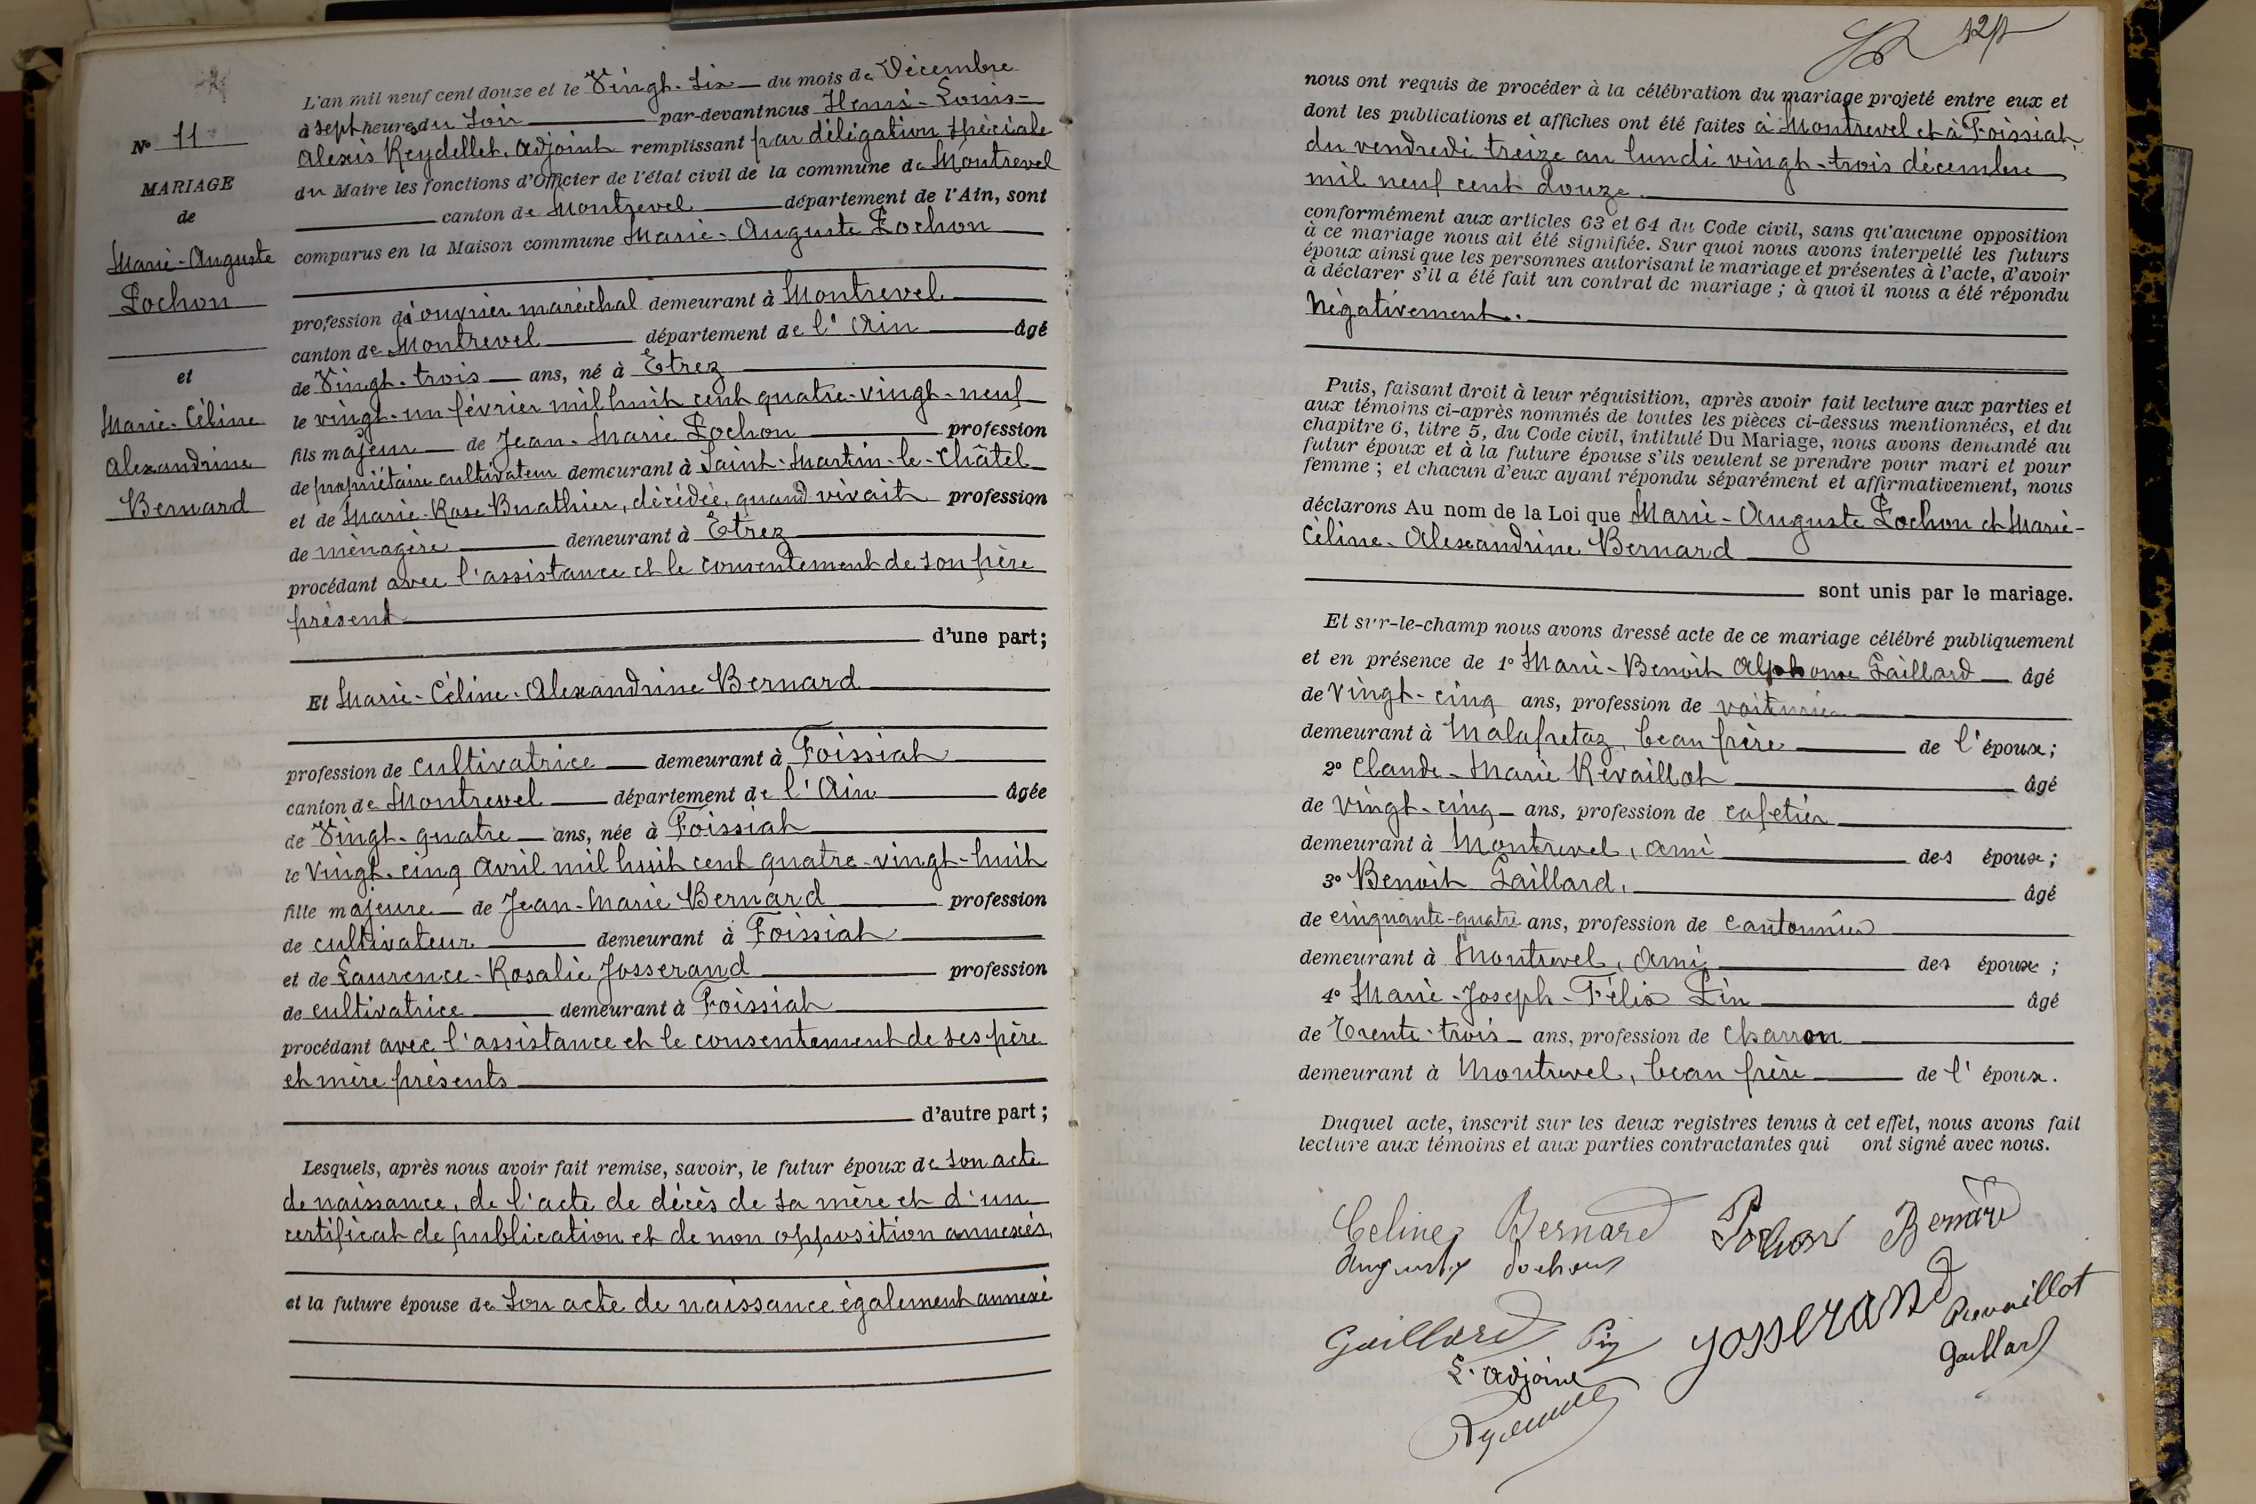 N° 11
MARIAGE
de
Marie-Auguste
Pochon
et
Marie-Céline
Alexandrine
Bernard
L'an mil neuf cent douze et le Vingt-six du mois de Décembre
à sept heures du soir par-devant nous Henri-Louis-
Alexis Reydellet, adjoint remplissant par délégation spéciale
du Maire les fonctions d'Officier de l'état civil de la commune de Montrevel
canton de Montrevel département de l'Ain, sont
comparus en la Maison commune Marie-Auguste Pochon
profession d'ouvrier maréchal demeurant à Montrevel
canton de Montrevel département de l'Ain âgé
de Vingt-trois ans, né à Etrez
le vingt-un février mil huit cent quatre-vingt-neuf
fils majeur de Jean-Marie Pochon profession
de propriétaire cultivateur demeurant à Saint-Martin-le-Châtel
et de Marie-Rose Buathier, décédée, quand vivait profession
de ménagère demeurant à Etrez
procédant avec l'assistance et le consentement de son père
présent
d'une part;
Et Marie-Céline-Alexandrine Bernard
profession de cultivatrice demeurant à Foissiat
canton de Montrevel département de l'Ain âgée
de Vingt-quatre ans, née à Foissiat
le Vingt-cinq avril mil huit cent quatre-vingt-huit
fille majeure de Jean-Marie Bernard profession
de cultivateur demeurant à Foissiat
et de Laurence-Rosalie Josserand profession
de cultivatrice demeurant à Foissiat
procédant avec l'assistance et le consentement de ses père
et mère présents
d'autre part;
Lesquels, après nous avoir fait remise, savoir, le futur époux de son acte
de naissance, de l'acte de décès de sa mère et d'un
certificat de publication et de non opposition annexés,
et la future épouse de son acte de naissance également annexé
nous ont requis de procéder à la célébration du mariage projeté entre eux et
dont les publications et affiches ont été faites à Montrevel et à Foissiat
du vendredi treize au lundi vingt-trois décembre
mil neuf cent douze
conformément aux articles 63 et 64 du Code civil, sans qu'aucune opposition
à ce mariage nous ait été signifiée. Sur quoi nous avons interpellé les futurs
époux ainsi que les personnes autorisant le mariage et présentes à l'acte, d'avoir
à déclarer s'il a été fait un contrat de mariage; à quoi il nous a été répondu
négativement.
Puis, faisant droit à leur réquisition, après avoir fait lecture aux parties et
aux témoins ci-après nommés de toutes les pièces ci-dessus mentionnées, et du
chapitre 6, titre 5, du Code civil, intitulé Du Mariage, nous avons demandé au
futur époux et à la future épouse s'ils veulent se prendre pour mari et pour
femme; et chacun d'eux ayant répondu séparément et affirmativement, nous
déclarons Au nom de la Loi que Marie-Auguste Pochon et Marie-
Céline-Alexandrine Bernard
sont unis par le mariage.
Et sur-le-champ nous avons dressé acte de ce mariage célébré publiquement
et en présence de 1° Marie-Benoit Alphonse Gaillard âgé
de Vingt-cinq ans, profession de voiturier
demeurant à Malafretaz, beau frère de l'époux;
2° Claude-Marie Revaillot âgé
de Vingt-cinq ans, profession de cafetier
demeurant à Montrevel, ami des époux;
3° Benoit Gaillard, âgé
de cinquante-quatre ans, profession de cantonnier
demeurant à Montrevel, ami des époux;
4° Marie-Joseph-Félix Pin âgé
de Trente-trois ans, profession de charron
demeurant à Montrevel, beau frère de l'époux.
Duquel acte, inscrit sur les deux registres tenus à cet effet, nous avons fait
lecture aux témoins et aux parties contractantes qui ont signé avec nous.
Celine Bernard Pochon Bernard
Auguste Pochon
Gaillard Pin Josserand Revaillot
Gaillard
L'adjoint